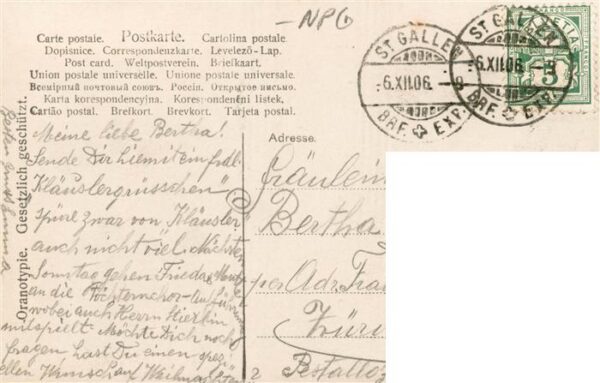 -NPG
Carte postale. Postkarte. Cartolina postale.
Dopisnice. Correspondenzkarte. Levelező-Lap.
Post card. Weltpostverein. Briefkaart.
Union postale universelle. Unione postale universale.
Всемірный почтовый союзъ. Россія. Открытое письмо.
Karta korespondencyjna. Korespondenční listek.
Cartão postal. Brefkort. Brevkort. Tarjeta postal.
ST GALLEN
6.XII.06.
BRF. EXP.
ST GALLEN
6.XII.06. - 9
BRF. EXP.
HELVETIA
5
Oranotypie. Gesetzlich geschützt.
Meine liebe Bertha!
Sende Dir hiemit ein frdl.
Kläuslergrüsschen
spüre zwar von Kläusler
auch nicht viel. Nächsten
Sonntag gehen Frieda
an die Töchterchor-Aufführung
wobei auch Herrn
mitspielt. Möchte Dich noch
fragen hast Du einen spez
ellen Wunsch auf Weihnachten
Adresse.
Fräulein
Bertha
per Adr. Frau
Züri
Pestalozz